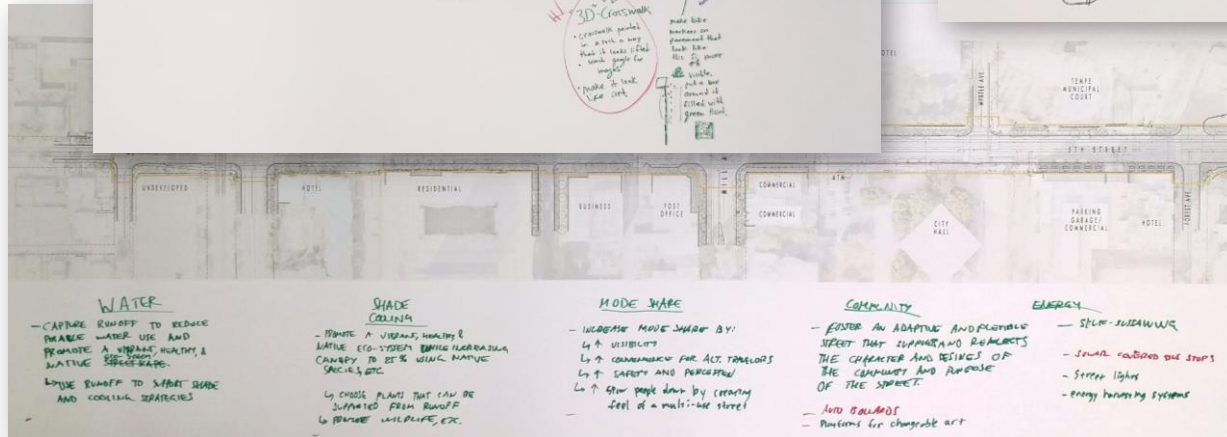 3D-Crosswalk
• crosswalk painted
in a such a way
that it looks lifted
• search google for
images
• make it look
like art
make bike
markings on
pavement that
look like
this. is more
visible.
put a box
around it
filled with
green paint
TEMPE
MUNICIPAL
COURT
MYRTLE AVE.
5TH STREET
UNDEVELOPED
HOTEL
RESIDENTIAL
BUSINESS
POST
OFFICE
MILL
COMMERCIAL
COMMERCIAL
ATM
CITY
HALL
PARKING
GARAGE/
COMMERCIAL
HOTEL
FOREST AVE.
WATER
— CAPTURE RUNOFF TO REDUCE
POTABLE WATER USE AND
PROMOTE A VIBRANT, HEALTHY, &
NATIVE STREETSCAPE.
↳ USE RUNOFF TO SUPPORT SHADE
AND COOLING STRATEGIES
SHADE
COOLING
— PROMOTE A VIBRANT, HEALTHY &
NATIVE ECO-SYSTEM WHILE INCREASING
CANOPY TO 25% USING NATIVE
SPECIES, ETC.
↳ CHOOSE PLANTS THAT CAN BE
SUPPORTED FROM RUNOFF
↳ PROMOTE WILDLIFE, ETC.
MODE SHARE
— INCREASE MODE SHARE BY:
↳ ↑ VISIBILITY
↳ ↑ CONVENIENCE FOR ALT. TRAVELORS
↳ ↑ SAFETY AND PERCEPTION
↳ ↑ slow people down by creating
feel of a multi-use street
COMMUNITY
— FOSTER AN ADAPTIVE AND FLEXIBLE
STREET THAT SUPPORTS AND REFLECTS
THE CHARACTER AND DESIRES OF
THE COMMUNITY AND PURPOSE
OF THE STREET.
— AUTO BOLLARDS
— Platforms for changeable art
ENERGY
— SELF-SUSTAINING
— SOLAR COVERED BUS STOPS
— Street lights
— energy harvesting systems